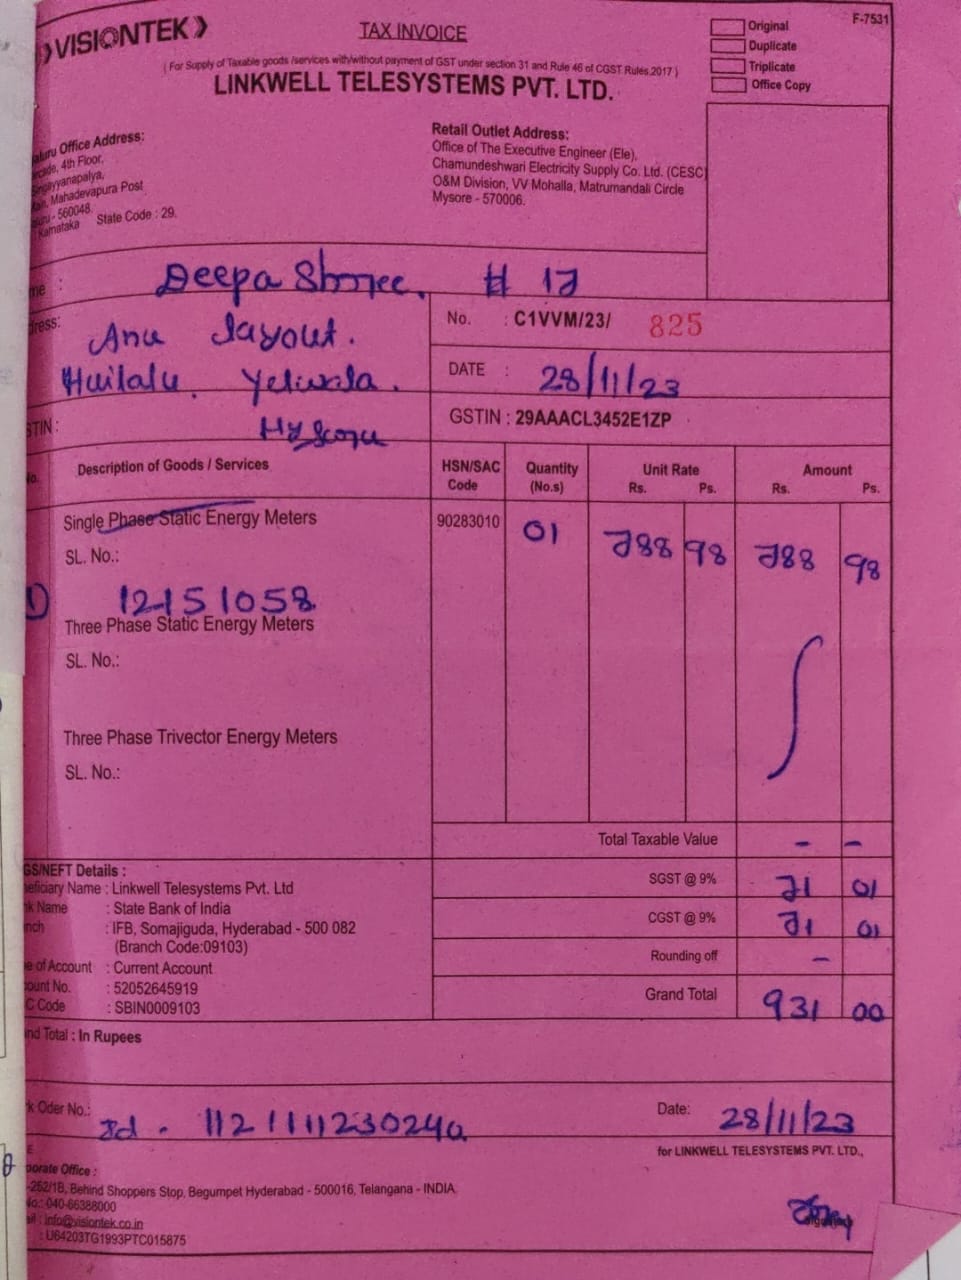 VISIONTEK
TAX INVOICE
F-7531
Original
Duplicate
Triplicate
Office Copy
( For Supply of Taxable goods /services with/without payment of GST under section 31 and Rule 46 of CGST Rules.2017 )
LINKWELL TELESYSTEMS PVT. LTD.
Office Address:
4th Floor,
Mahadevapura Post
- 560048.
Karnataka State Code : 29.
Retail Outlet Address:
Office of The Executive Engineer (Ele),
Chamundeshwari Electricity Supply Co. Ltd. (CESC)
O&M Division, VV Mohalla, Matrumandali Circle
Mysore - 570006.
Deepa Shree. # 17
Anu layout.
Huilalu Yeliwala.
No. : C1VVM/23/ 825
DATE : 28/11/23
GSTIN : 29AAACL3452E1ZP
Description of Goods / Services
HSN/SAC Code
Quantity (No.s)
Unit Rate
Rs. Ps.
Amount
Rs. Ps.
Single Phase Static Energy Meters 90283010 01 788 98 788 98
SL. No.:
1) 12151058
Three Phase Static Energy Meters
SL. No.:
Three Phase Trivector Energy Meters
SL. No.:
Total Taxable Value - -
SGST @ 9% 71 01
CGST @ 9% 71 01
Rounding off -
Grand Total 931 00
GS/NEFT Details :
eficiary Name : Linkwell Telesystems Pvt. Ltd
k Name : State Bank of India
nch : IFB, Somajiguda, Hyderabad - 500 082
(Branch Code:09103)
e of Account : Current Account
ount No. : 52052645919
C Code : SBIN0009103
nd Total : In Rupees
k Oder No.:
112111123024
Date: 28/11/23
for LINKWELL TELESYSTEMS PVT. LTD.,
porate Office :
-252/1B, Behind Shoppers Stop, Begumpet Hyderabad - 500016, Telangana - INDIA
No.: 040-66388000
il : info@visiontek.co.in
: U64203TG1993PTC015875